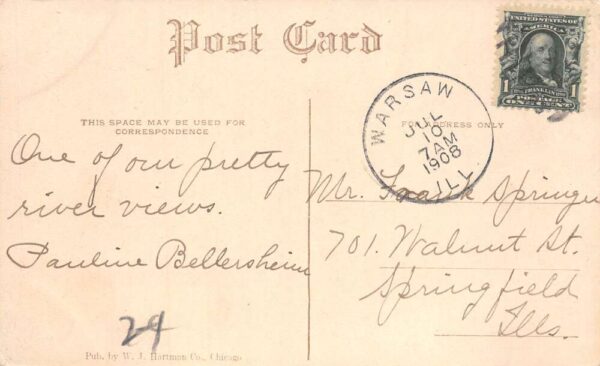 Post Card
THIS SPACE MAY BE USED FOR
CORRESPONDENCE
FOR ADDRESS ONLY
One of our pretty
river views.
Pauline Bellersheim
WARSAW
JUL
10
7AM
1908
ILL.
UNITED STATES OF
1 FRANKLIN 1
POSTAGE
ONE CENT
Mr. Frank Springer
701. Walnut St.
Springfield
Ills.
24
Pub. by W. J. Hartman Co., Chicago